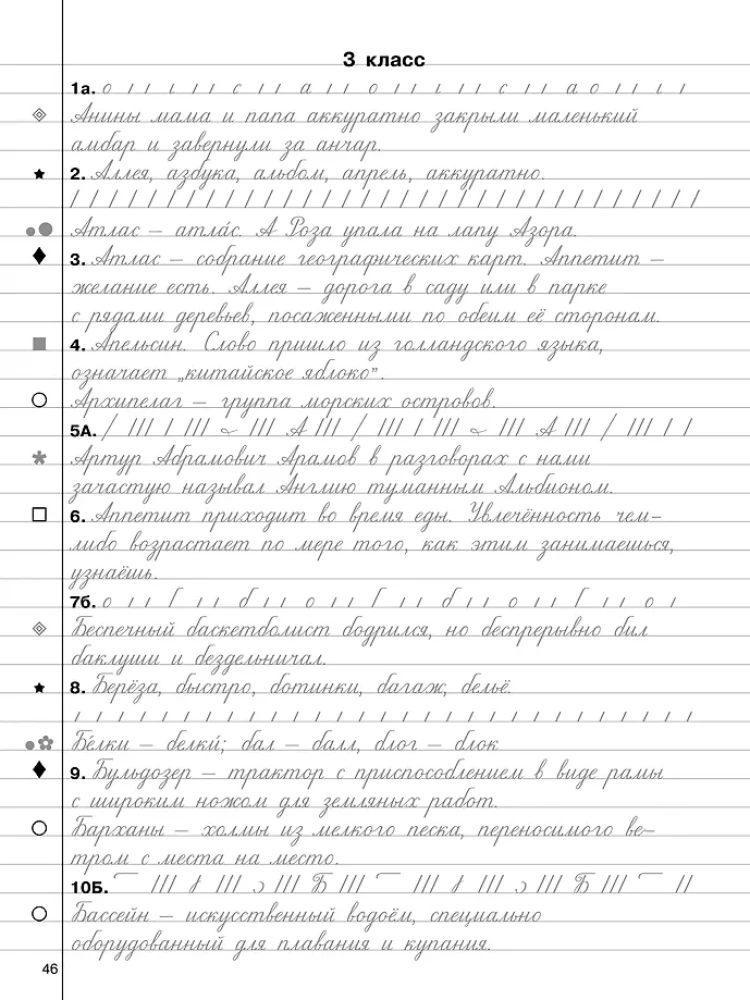 3 класс
1а. о / / ı / / с / / а / / о / / ı / / с / / а о / / ı ı
Анины мама и папа аккуратно закрыли маленький
амбар и завернули за анчар.
2. Аллея, азбука, альбом, апрель, аккуратно.
Атлас – атла́с. А Роза упала на лапу Азора.
3. Атлас – собрание географических карт. Аппетит –
желание есть. Аллея – дорога в саду или в парке
с рядами деревьев, посаженными по обеим её сторонам.
4. Апельсин. Слово пришло из голландского языка,
означает „китайское яблоко”.
Архипелаг – группа морских островов.
5А. / /// / /// ~ /// А /// / /// / /// ~ /// А /// / /// / /
Артур Абрамович Арамов в разговорах с нами
зачастую называл Англию туманным Альбионом.
6. Аппетит приходит во время еды. Увлечённость чем-
либо возрастает по мере того, как этим занимаешься,
узнаёшь.
7б.
Беспечный баскетболист бодрился, но беспрерывно бил
баклуши и бездельничал.
8. Берёза, быстро, ботинки, багаж, бельё.
Бе́лки – белки́; бал – балл, блог – блок
9. Бульдозер – трактор с приспособлением в виде рамы
с широким ножом для земляных работ.
Барханы – холмы из мелкого песка, переносимого ве-
тром с места на место.
10Б.
Бассейн – искусственный водоём, специально
оборудованный для плавания и купания.
46